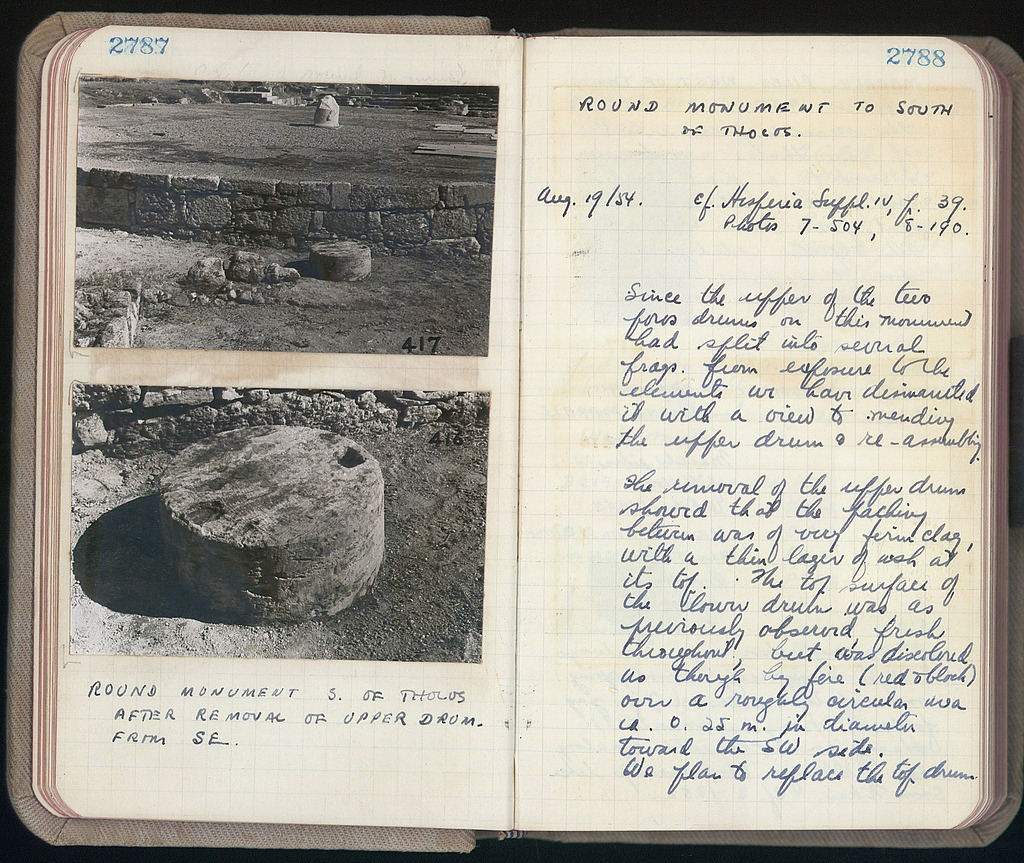 2787
417
416
ROUND MONUMENT S. OF THOLOS
AFTER REMOVAL OF UPPER DRUM.
FROM SE.
2788
ROUND MONUMENT TO SOUTH
OF THOLOS.
Aug. 19/54. cf. Hesperia Suppl. IV, p. 39.
Photos 7-504, 8-190.
Since the upper of the two
poros drums on this monument
had split into several
frags. from exposure to the
elements we have dismantled
it with a view to mending
the upper drum & re-assembling.
The removal of the upper drum
showed that the packing
between was of very firm clay,
with a thin layer of ash at
its top. The top surface of
the lower drum was as
previously observed, fresh
throughout, but was discolored
as though by fire (red & black)
over a roughly circular area
ca. 0.25 m. in diameter
toward the SW side.
We plan to replace the top drum